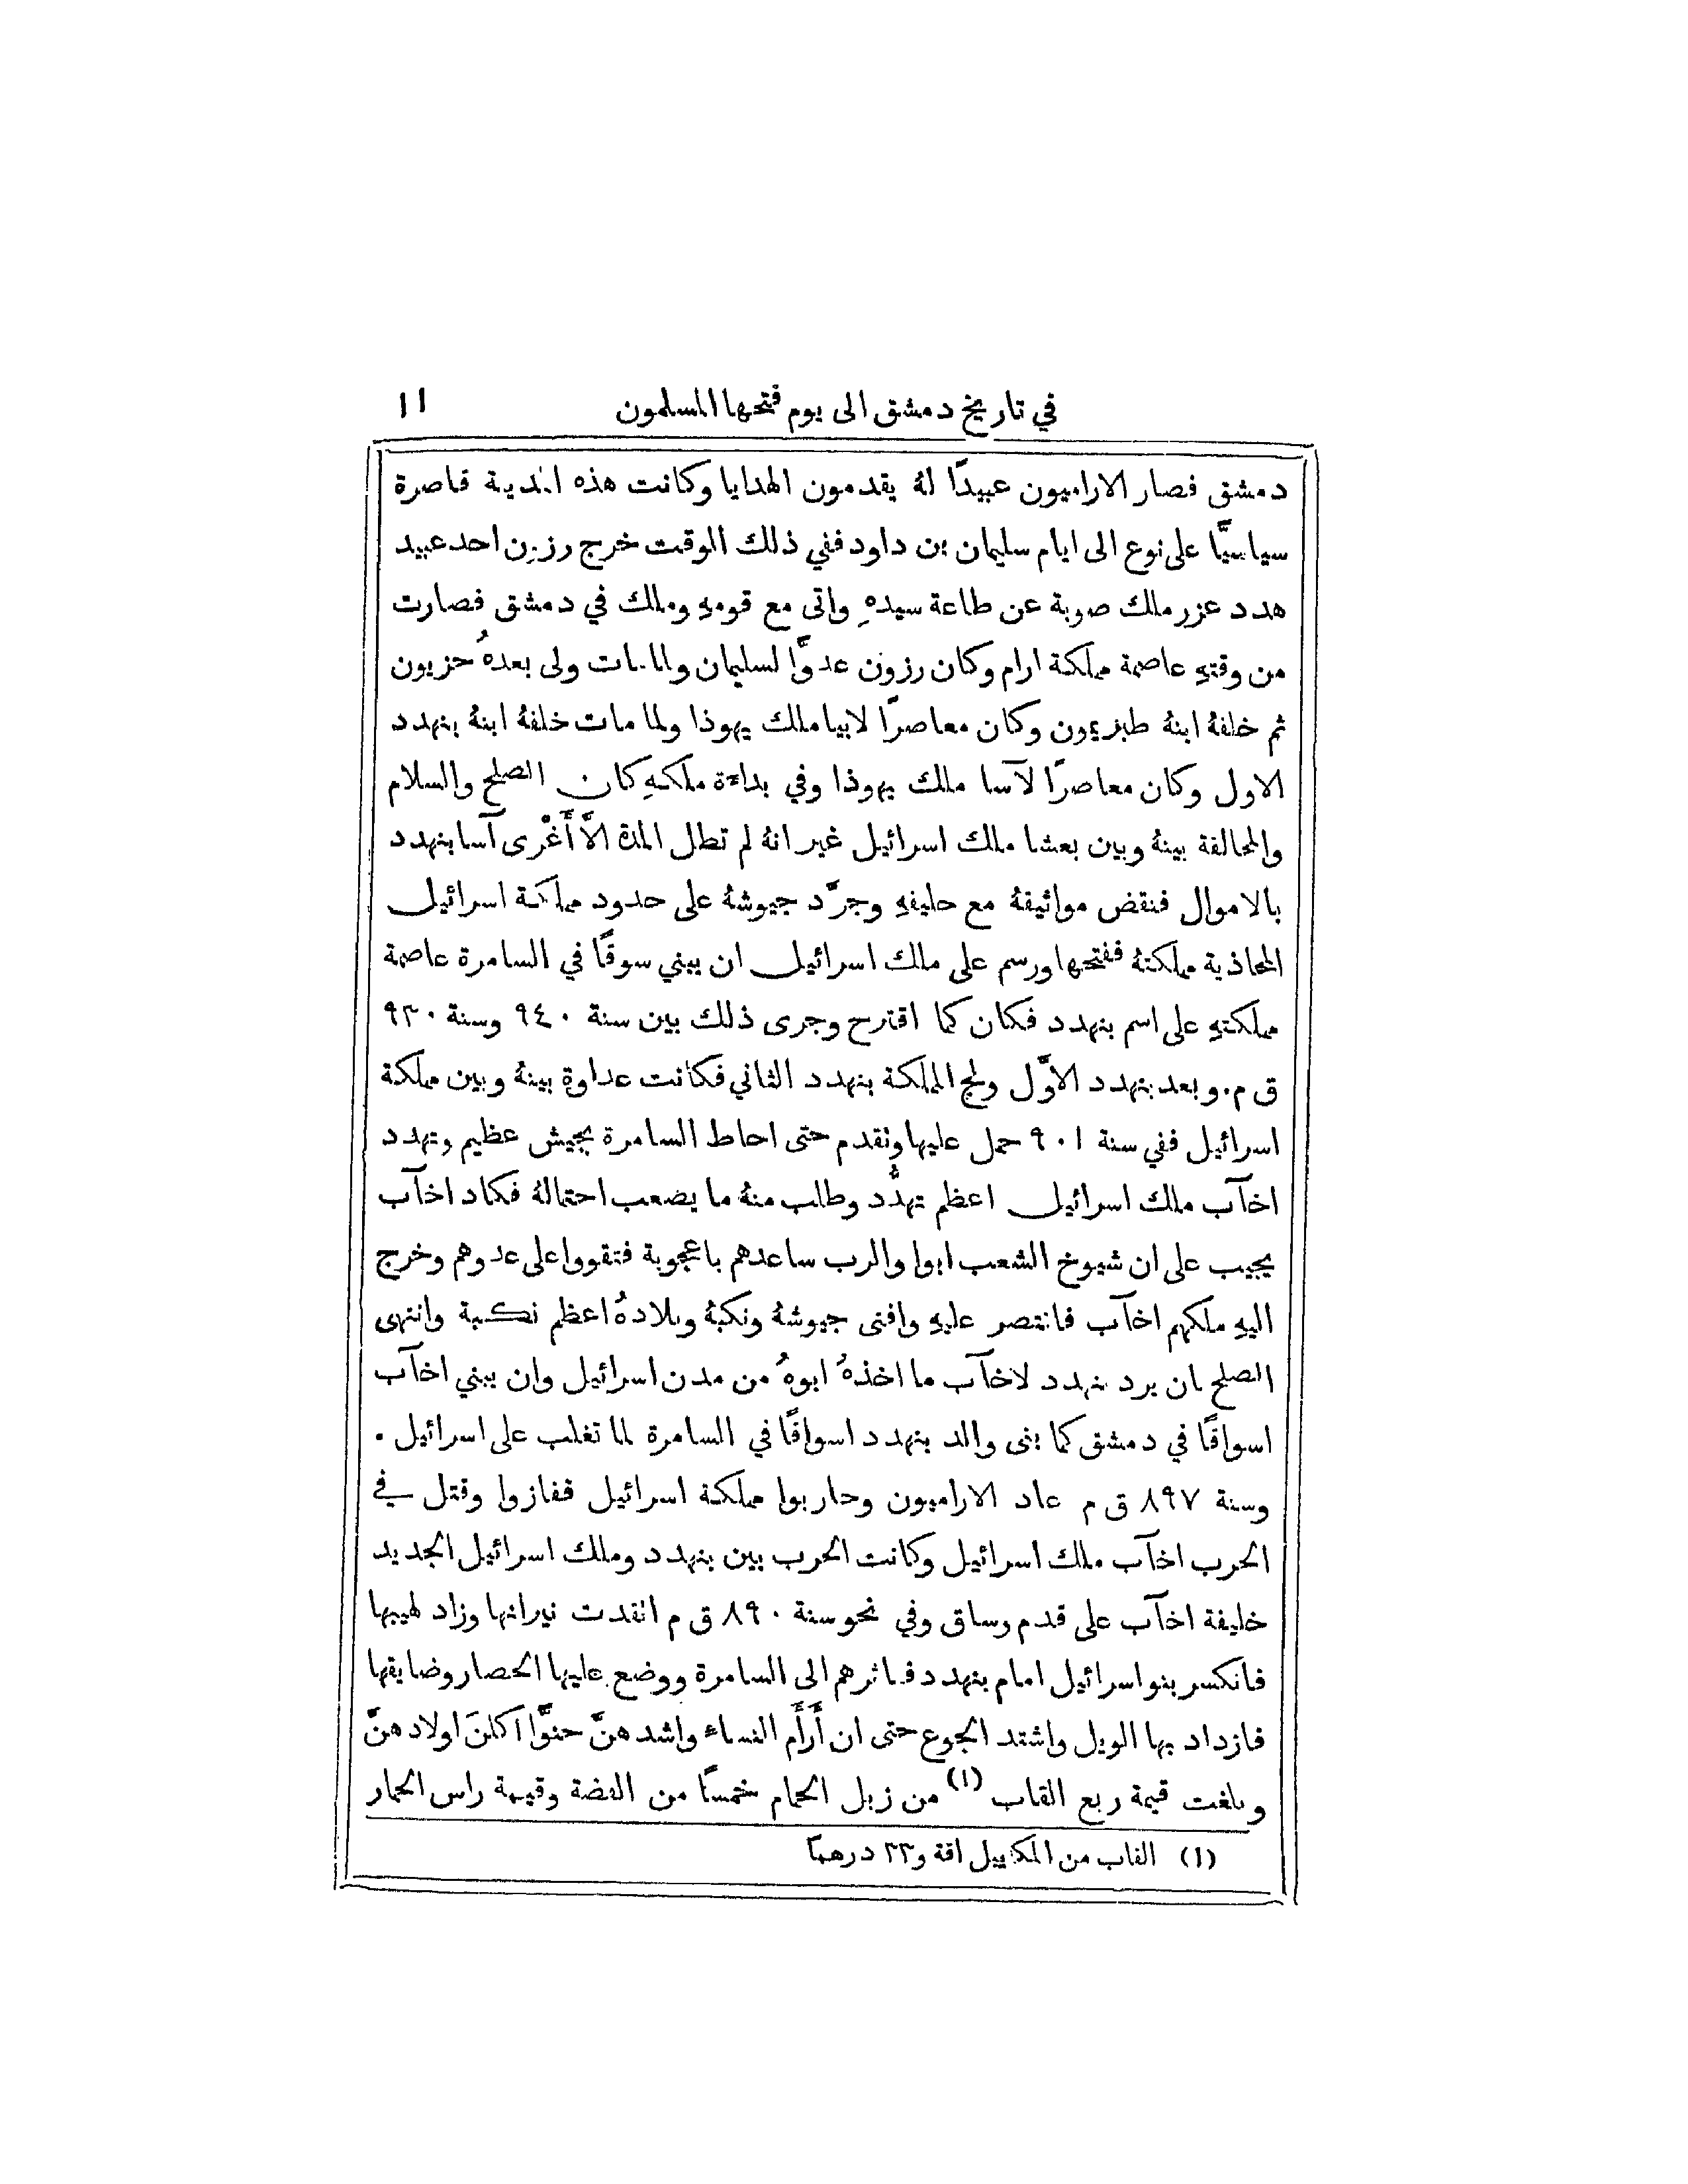 في تاريخ دمشق الى يوم فتحها المسلمون ١١
دمشق فصار الاراميون عبيدًا لهُ يقدمون الهدايا وكانت هذه المدينة قاصرة
سياسيًّا على نوع الى ايام سليمان بن داود ففي ذلك الوقت خرج رزين احد عبيد
هدد عزر ملك صوبة عن طاعة سيدهِ واتى مع قومهِ وملك في دمشق فصارت
من وقتهِ عاصمة مملكة ارام وكان رزون عدوًّا لسليمان ولما مات ولي بعدهُ حزيون
ثم خلفهُ ابنهُ طبريمون وكان معاصرًا لابيا ملك يهوذا ولما مات خلفهُ ابنهُ بنهدد
الاول وكان معاصرًا لآسا ملك يهوذا وفي بداءة ملكهِ كان الصلح والسلام
والمحالفة بينهُ وبين بعشا ملك اسرائيل غير انهُ لم تطل المدة الَّا أَغْرى آسا بنهدد
بالاموال فنقض مواثيقهُ مع حليفهِ وجرَّد جيوشهُ على حدود مملكة اسرائيل
المحاذية مملكتهُ ففتحها ورسم على ملك اسرائيل ان يبني سوقًا في السامرة عاصمة
مملكتهِ على اسم بنهدد فكان كما اقترح وجرى ذلك بين سنة ٩٤٠ وسنة ٩٣٠
ق م. وبعد بنهدد الاوَّل ولج المملكة بنهدد الثاني فكانت عداوة بينهُ وبين مملكة
اسرائيل ففي سنة ٩٠١ حمل عليها وتقدم حتى احاط السامرة بجيش عظيم وتهدد
اخآب ملك اسرائيل اعظم تهدُّد وطلب منهُ ما يصعب احتمالهُ فكاد اخآب
يجيب على ان شيوخ الشعب ابوا والرب ساعدهم باعجوبة فتقووا على عدوهم وخرج
اليهِ ملكهم اخآب فانتصر عليهِ وافنى جيوشهُ ونكبهُ وبلادهُ اعظم نكبة وانتهى
الصلح بان يرد بنهدد لاخآب ما اخذهُ ابوهُ من مدن اسرائيل وان يبني اخآب
اسواقًا في دمشق كما بنى والد بنهدد اسواقًا في السامرة لما تغلب على اسرائيل.
وسنة ٨٩٧ ق م عاد الاراميون وحاربوا مملكة اسرائيل ففازوا وقتل في
الحرب اخآب ملك اسرائيل وكانت الحرب بين بنهدد وملك اسرائيل الجديد
خليفة اخآب على قدم وساق وفي نحو سنة ٨٩٠ ق م اتقدت نيرانها وزاد لهيبها
فانكسر بنو اسرائيل امام بنهدد فاثرهم الى السامرة ووضع عليها الحصار وضايقها
فازداد بها الويل واشتد الجوع حتى ان أَرأَم النساء واشدهنَّ حنوًّا اكلنَ اولادهنَّ
وبلغت قيمة ربع القاب (١) من زبل الحمام خمسًا من الفضة وقيمة راس الحمار
(١) القاب من المكاييل اقة و٣٣ درهمًا